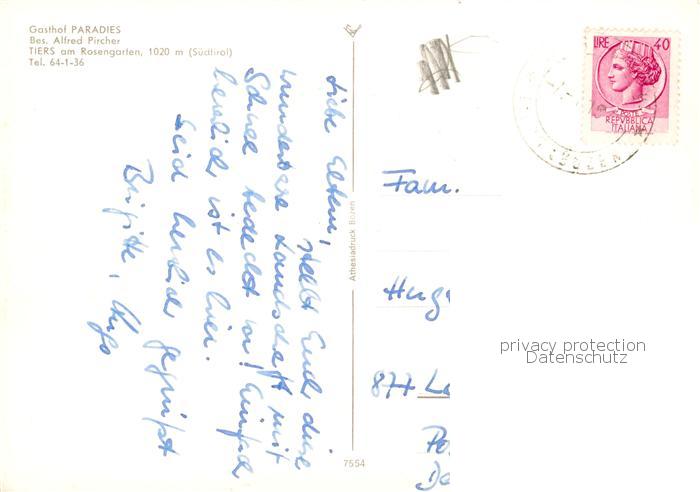 Gasthof PARADIES
Bes. Alfred Pircher
TIERS am Rosengarten, 1020 m (Südtirol)
Tel. 64-1-36
Liebe Eltern,
stellt Euch diese
wunderbare Landschaft mit
Schnee bedeckt vor! Einfach
herrlich ist es hier.
Seid herzlich gegrüßt
Brigitte, Hugo
Athesiadruck Bozen
7554
LIRE 40
POSTE
REPVBBLICA
ITALIANA
BOZEN
Fam.
Hug
877 Lo
privacy protection
Datenschutz